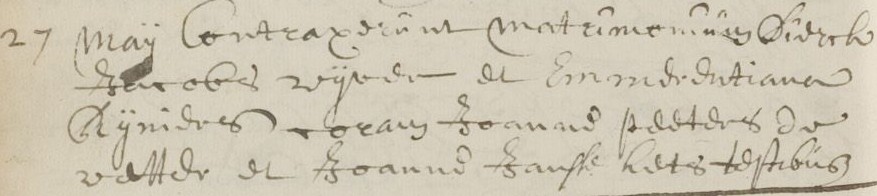 27 Maij Contraxerunt matrimonium Dierck
Jacobs et Emmerentiana
Rijnders coram Joanne peeters de
vetter et Joanne Janse testibus